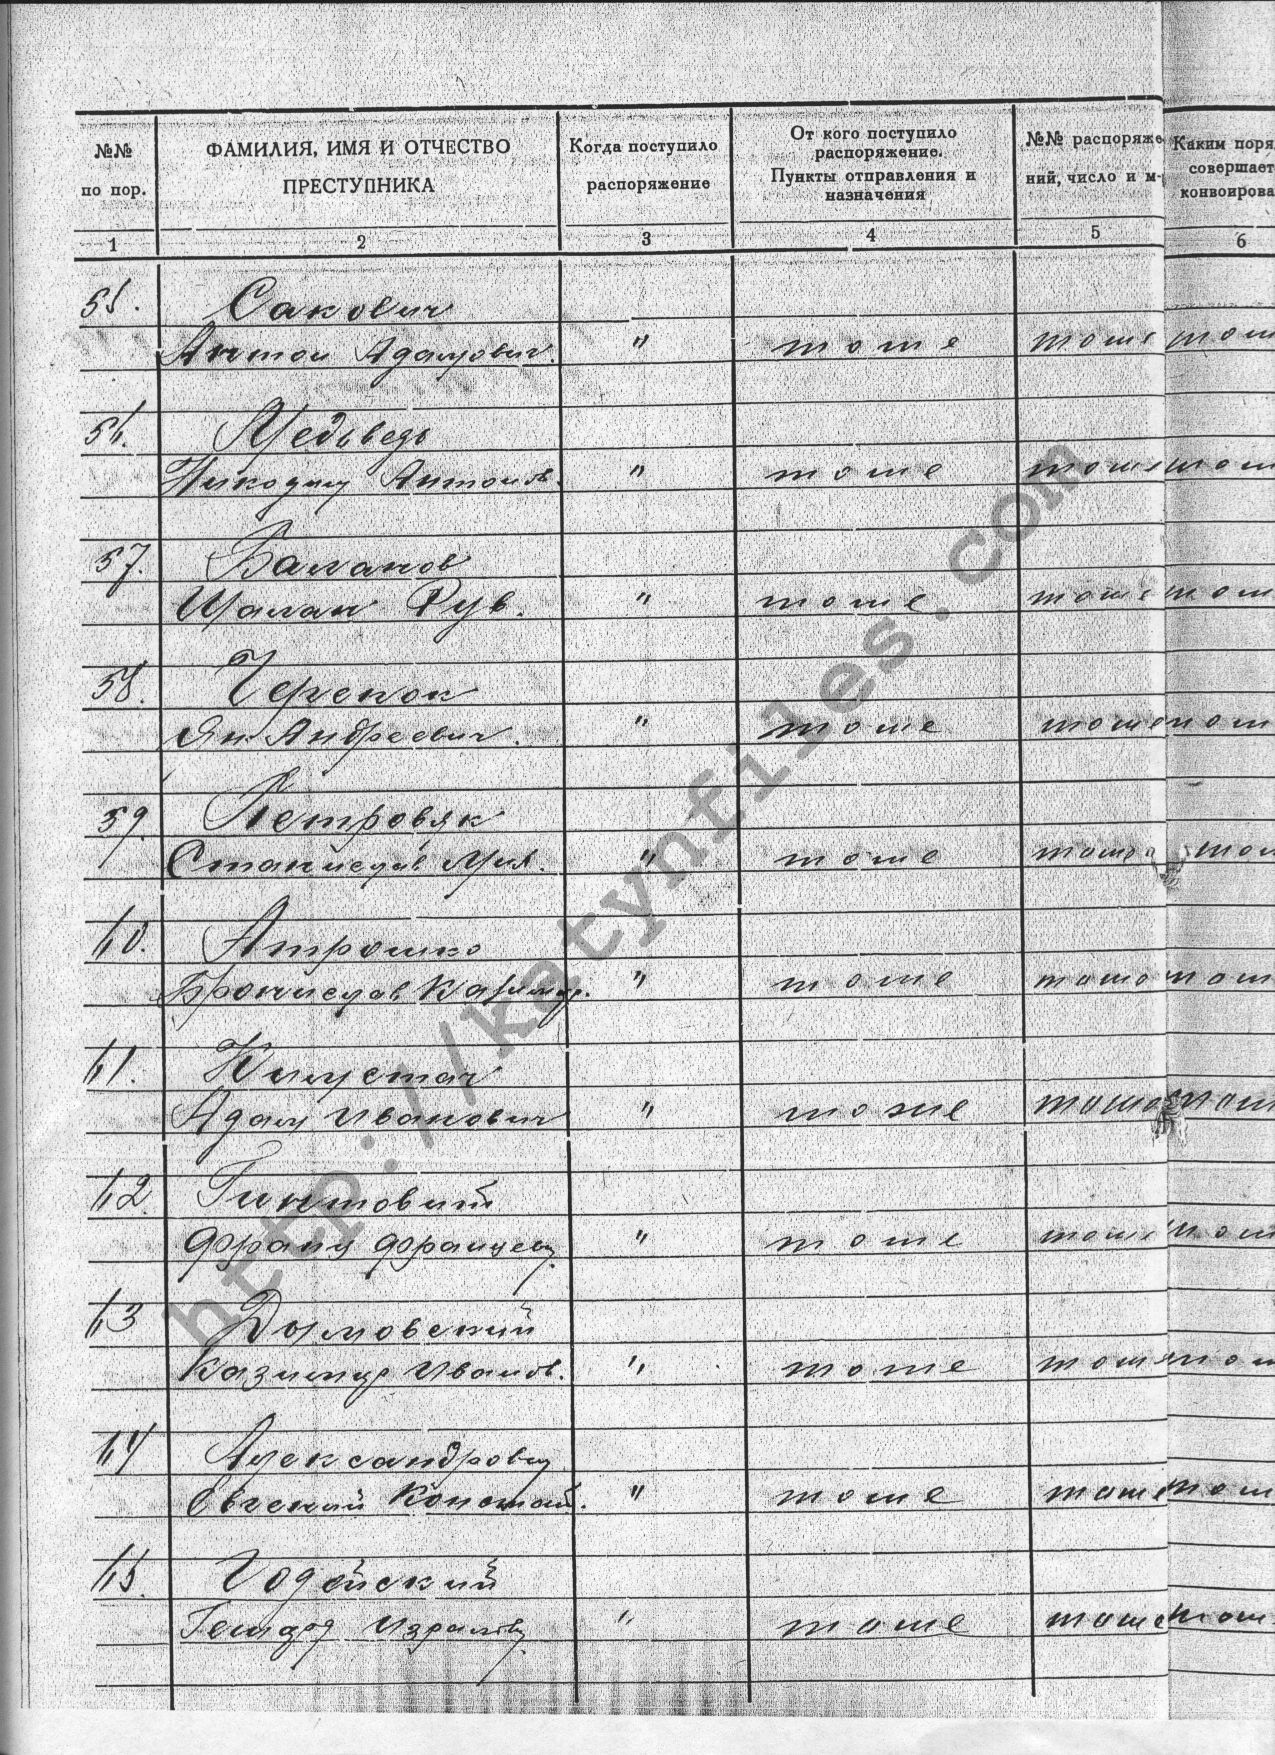 №№ по пор.
ФАМИЛИЯ, ИМЯ И ОТЧЕСТВО ПРЕСТУПНИКА
Когда поступило распоряжение
От кого поступило распоряжение. Пункты отправления и назначения
№№ распоряже- ний, число и м-
Каким поря совершает конвоирова
1 2 3 4 5 6
55. Сакович
Антон Адамович. " тоже тоже тож
56. Медведь
Никодим Антонов. " тоже тоже тож
57. Баланов
Шалан Рув. " тоже тоже тож
58. Черенок
Ян Андреевич. " тоже тоже тож
59. Петровяк
Станислав Мих. " тоже тоже тож
60. Атрошко
Бронислав Казимир. " тоже тоже тож
61. Климустач
Адам Иванович " тоже тоже тож
62. Гинтовит
Франц Францев. " тоже тоже тож
63 Дымовский
Казимир Иванов. " тоже тоже тож
64 Александрович
Евгений Констан. " тоже тоже тож
65. Годейский
Гетард Израилев. " тоже тоже тож
http://katynfiles.com